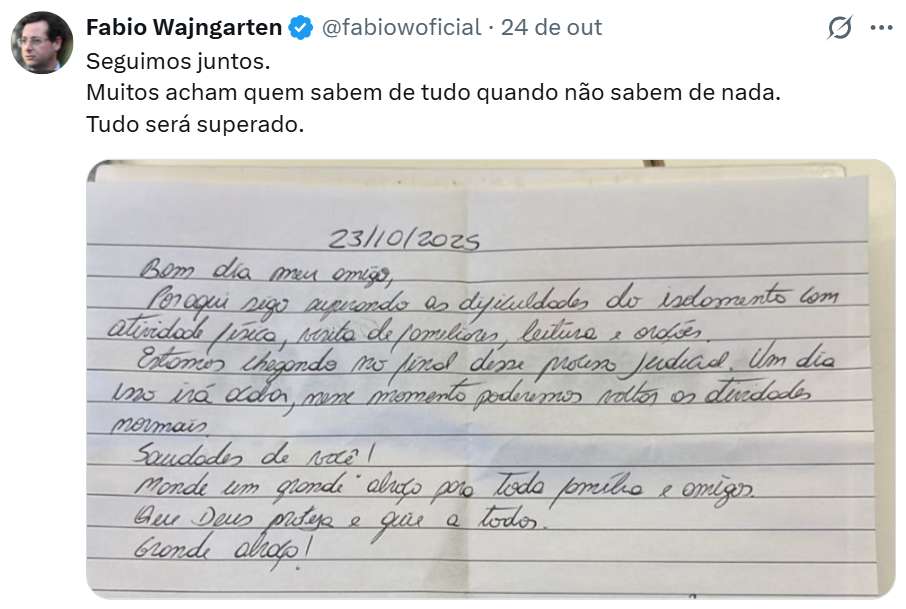 Fabio Wajngarten @fabiowoficial · 24 de out
Seguimos juntos.
Muitos acham quem sabem de tudo quando não sabem de nada.
Tudo será superado.
23/10/2025
Bom dia meu amigo,
Por aqui sigo superando as dificuldades do isolamento com
atividade física, visita de familiares, leitura e orações.
Estamos chegando no final desse processo judicial. Um dia
isso irá acabar, nesse momento poderemos voltar as atividades
normais.
Saudades de você!
Mande um grande abraço para toda família e amigos.
Que Deus proteja e guie a todos.
Grande abraço!